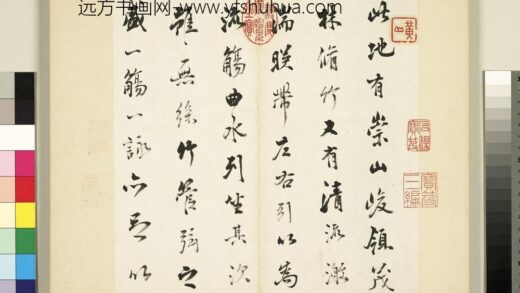 远方书画网 - www.yfshuhua.com
此地有崇山峻領茂
林脩竹又有清流激
湍暎帶左右引以為
流觴曲水列坐其次
雖無絲竹管弦之
盛一觴一詠亦足以
寶笈
三編